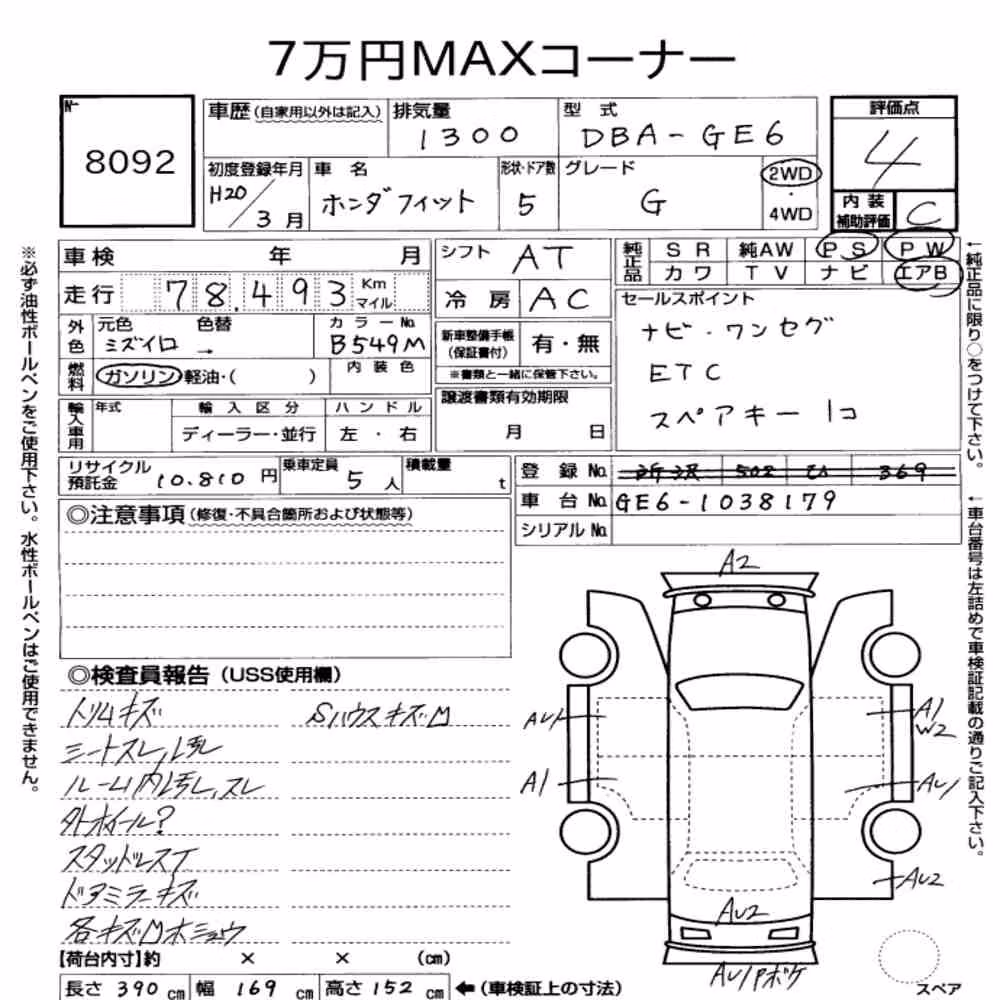 7万円MAXコーナー
No
8092
車歴(自家用以外は記入)
排気量
1300
型式
DBA-GE6
評価点
4
初度登録年月
H20/3月
車名
ホンダフィット
形状・ドア数
5
グレード
G
2WD
・
4WD
内装
補助評価
C
車検 年 月
シフト
AT
純正品
SR 純AW PS PW
カワ TV ナビ エアB
走行 78,493 Km マイル
冷房 AC
セールスポイント
ナビ・ワンセグ
ETC
スペアキー 1コ
外色
元色 色替
ミズイロ →
カラーNo
B549M
新車整備手帳
(保証書付)
有・無
※書類と一緒に保管下さい。
燃料
ガソリン・軽油・( )
内装色
譲渡書類有効期限
月 日
輸入車用
年式
輸入区分
ハンドル
ディーラー・並行
左・右
リサイクル
預託金
10.810円
乗車定員
5人
積載量
t
登録No.
502 369
車台No. GE6-1038179
シリアルNo.
◎注意事項(修復・不具合箇所および状態等)
◎検査員報告(USS使用欄)
トリムキズ
Sハウスキズ
シートスレ,汚レ
ルーム内汚レ,スレ
外ホイール?
スタッドレスT
ドアミラーキズ
各キズ
A2
AU1
A1
A1
W2
AU1
AU2
AU2
AU1Pボケ
スペア
【荷台内寸】約 × × (cm)
長さ 390cm 幅 169cm 高さ 152cm ←(車検証上の寸法)
※必ず油性ボールペンをご使用下さい。水性ボールペンはご使用できません。
←純正品に限り○をつけて下さい。
←車台番号は左詰めで車検証記載の通りご記入下さい。